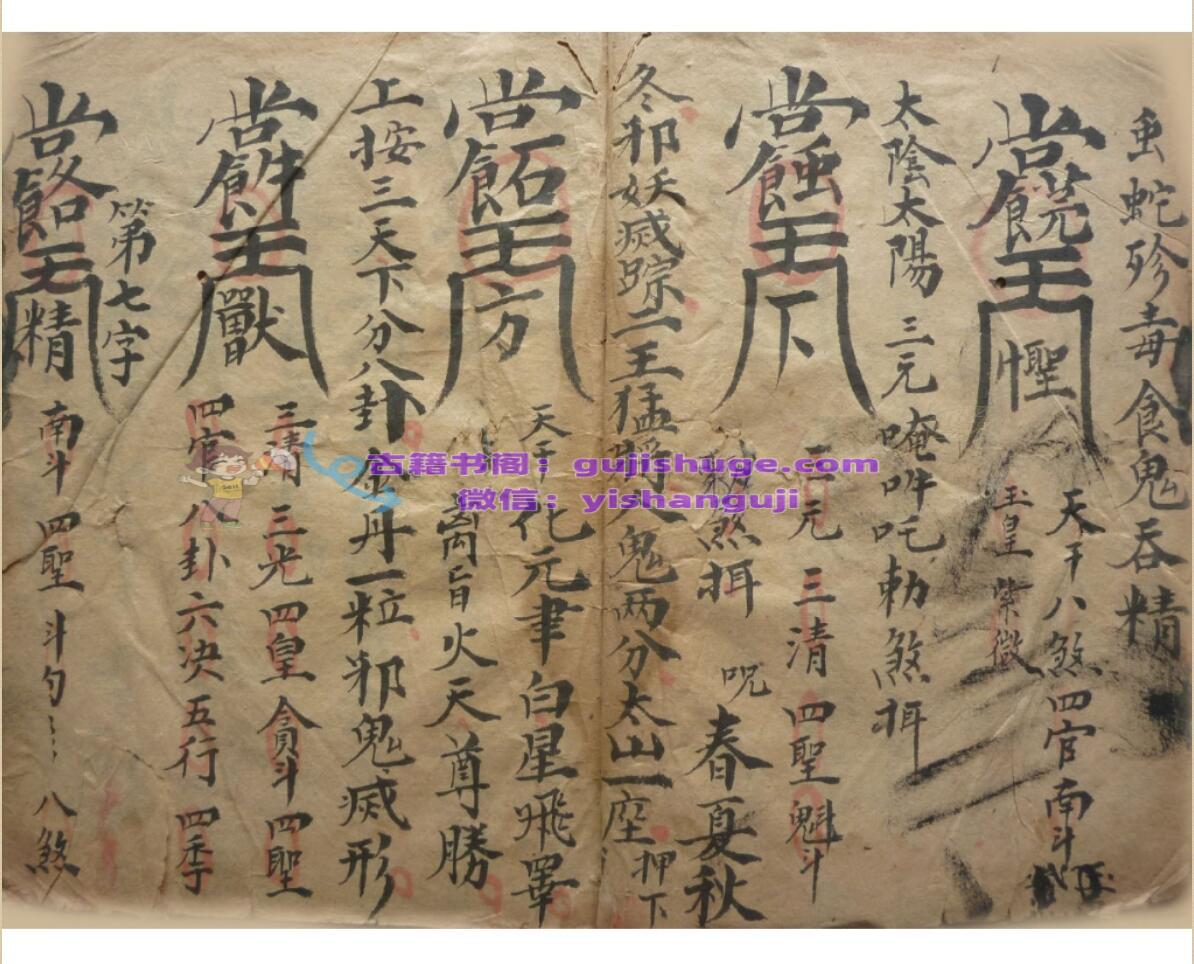 虫蛇珍毒食鬼吞精
天干八煞四官南斗
玉皇紫微
太陰太陽三元唵吽吒勅煞揖
下
三元三清四聖魁斗
煞揖
呪春夏秋
冬邪妖滅踪二王猛将人鬼两分太山一座押下
方
天干化元聿白星飛罩
离旨火天尊勝
上按三天下分八卦金丹一粒邪鬼滅形
獸
三清三光四皇貪斗四聖
四官八卦六决五行四季
第七字
精
南斗四聖斗勺⋮八煞
古籍书阁：gujishuge.com
微信：yishanguji